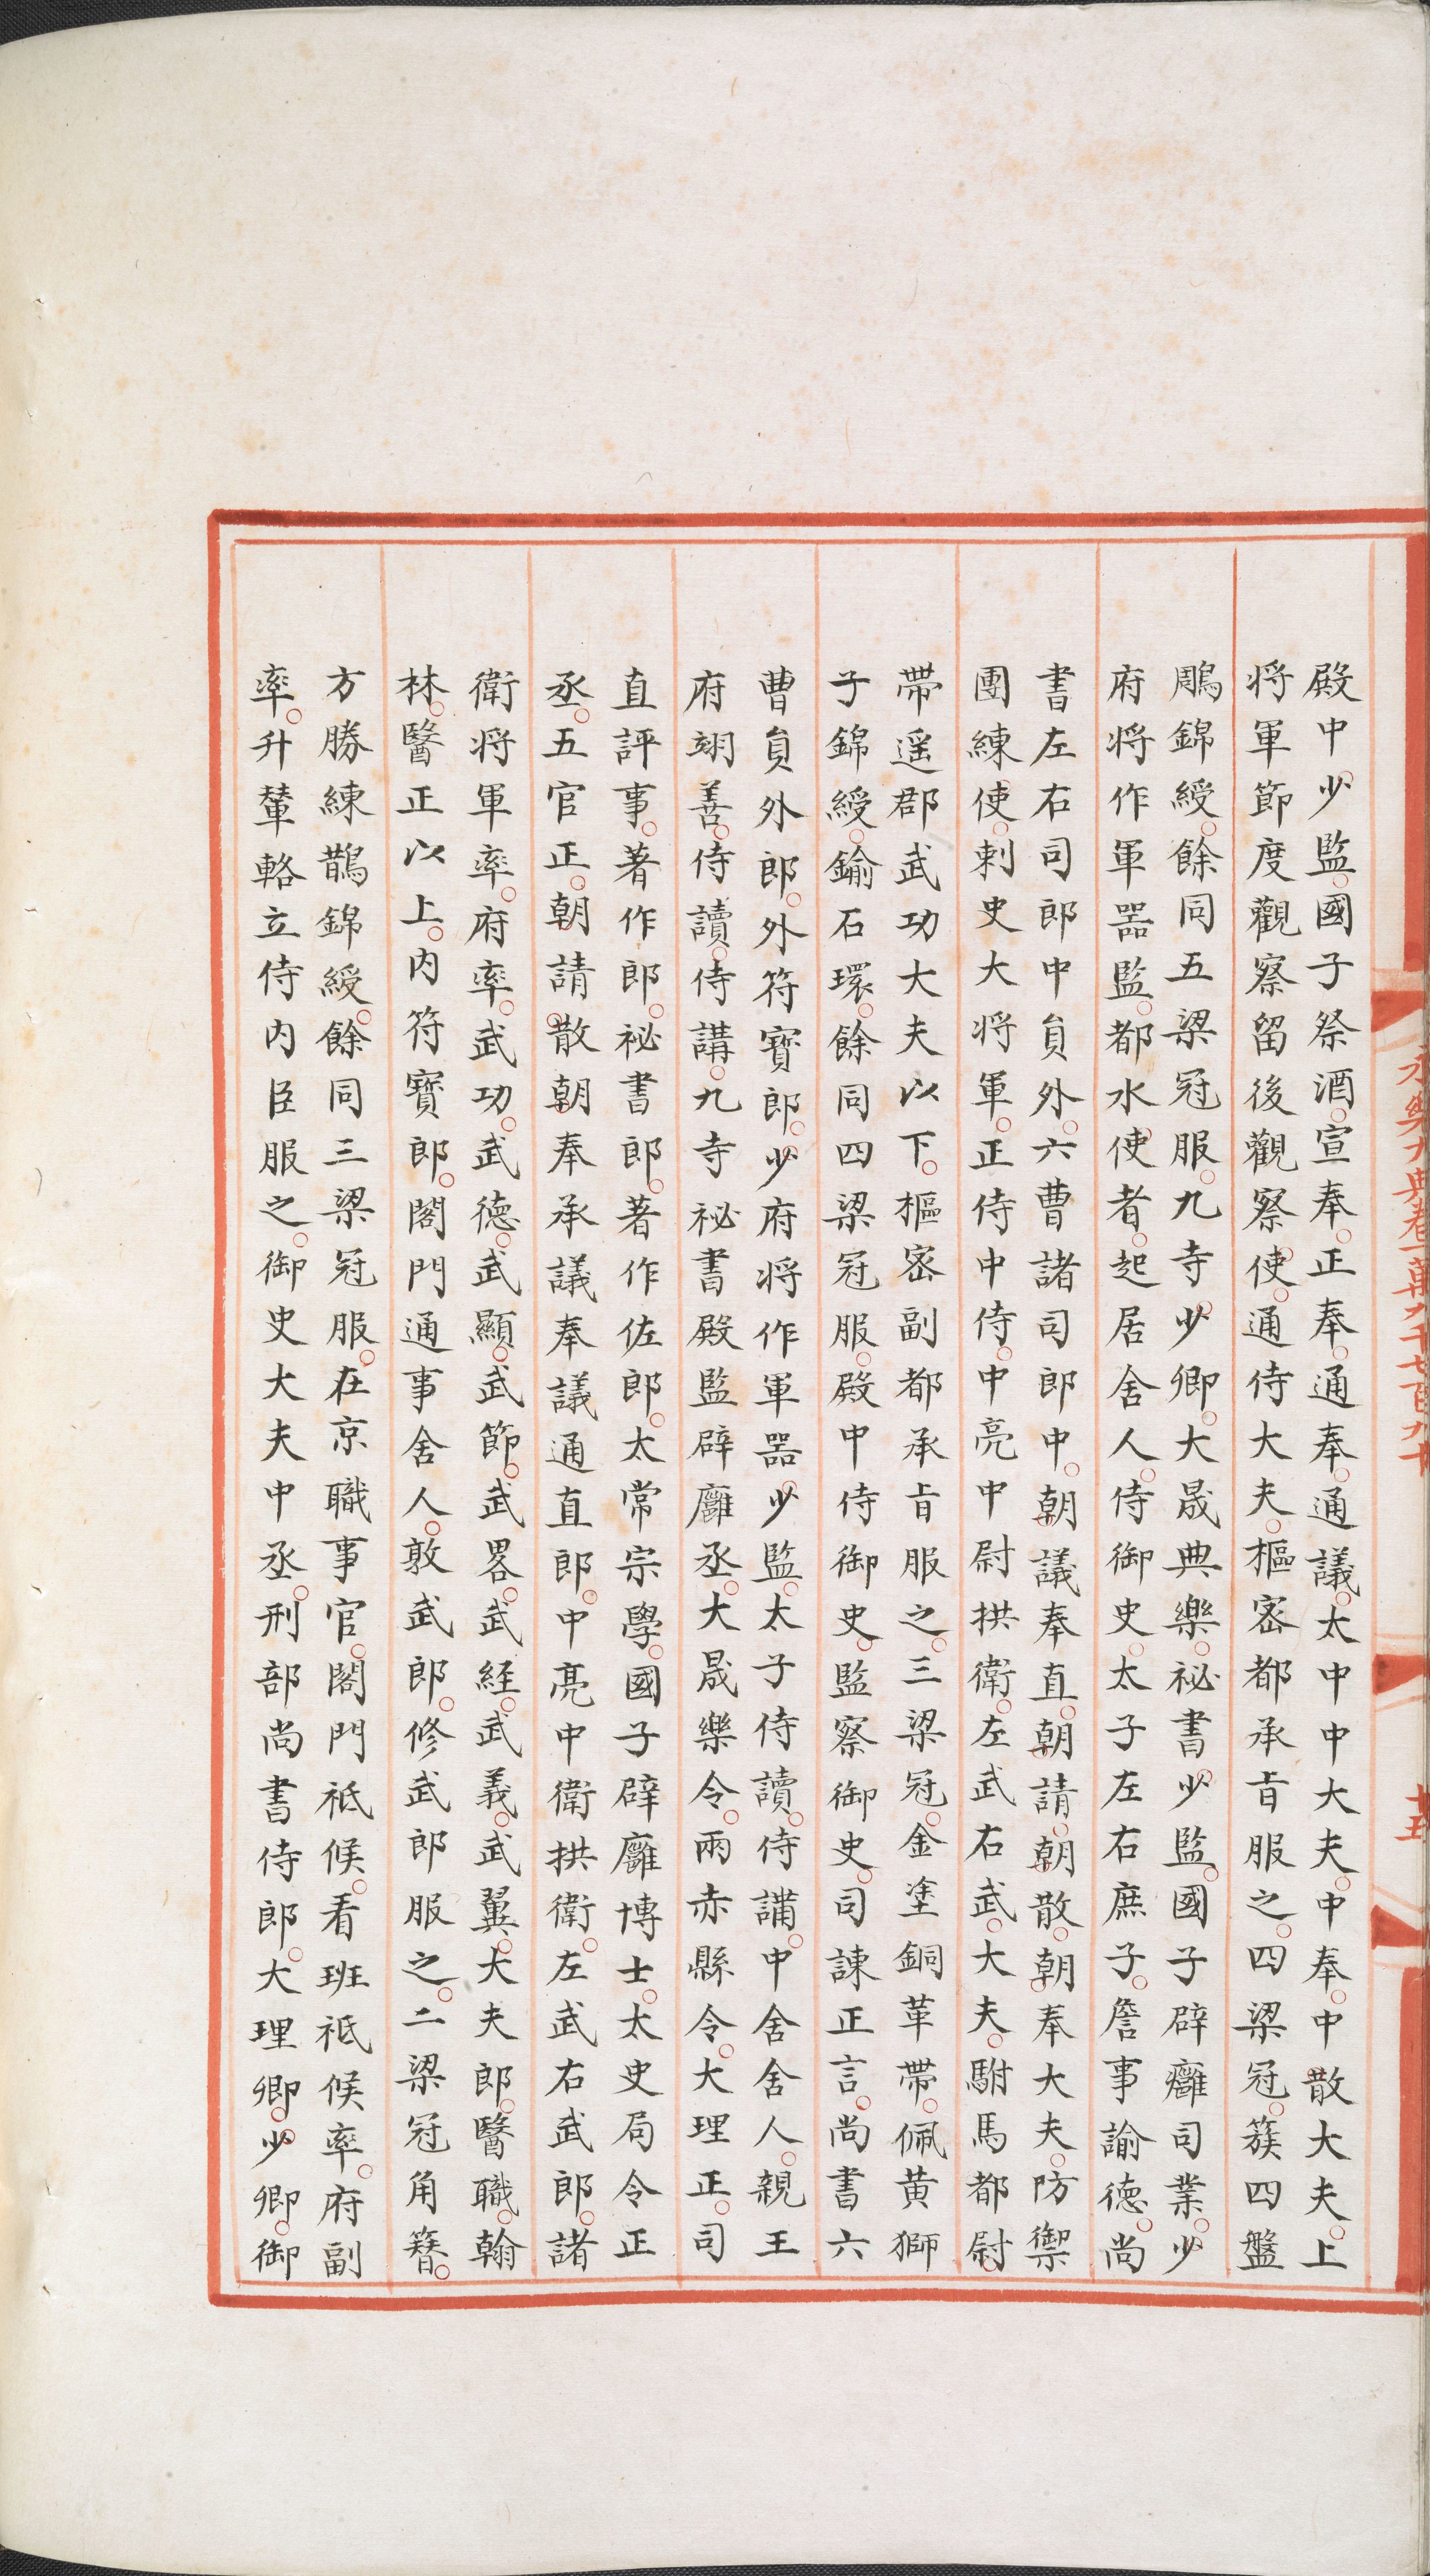 永樂大典卷一萬九千七百九十
十五
殿中少監。國子祭酒。宣奉。正奉。通奉。通議。太中中大夫。中奉。中散大夫。上
將軍節度觀察留後觀察使。通侍大夫。樞密都承旨服之。四梁冠。簇四盤
鵰錦綬。餘同五梁冠服。九寺少卿。大晟典樂。祕書少監。國子辟癰司業。少
府將作軍器監。都水使者。起居舍人。侍御史。太子左右庶子。詹事諭德。尚
書左右司郎中員外。六曹諸司郎中。朝議奉直。朝請。朝散。朝奉大夫。防禦
團練使。刺史大將軍。正侍中侍。中亮中尉拱衛。左武右武。大夫。駙馬都尉。
帶遥郡武功大夫以下。樞密副都承旨服之。三梁冠。金塗銅革帶。佩黄獅
子錦綬。鍮石環。餘同四梁冠服。殿中侍御史。監察御史。司諫正言。尚書六
曹員外郎。外符寶郎。少府將作軍器少監。太子侍讀。侍講。中舍舍人。親王
府翊善。侍讀。侍講。九寺祕書殿監辟廱丞。大晟樂令。兩赤縣令。大理正。司
直評事。著作郎。祕書郎。著作佐郎。太常宗學。國子辟廱博士。太史局令正
丞。五官正。朝請。散朝奉承議奉議通直郎。中亮中衛拱衛。左武右武郎。諸
衛將軍率。府率。武功。武德。武顯。武節。武畧。武経。武義。武翼。大夫郎。醫職。翰
林。醫正以上。内符寶郎。閣門通事舍人。敦武郎。修武郎服之。二梁冠角簪。
方勝練鵲錦綬。餘同三梁冠服。在京職事官。閤門祗候。看班祗候率。府副
率。升輦輅立侍内臣服之。御史大夫中丞。刑部尚書侍郎。大理卿。少卿。御